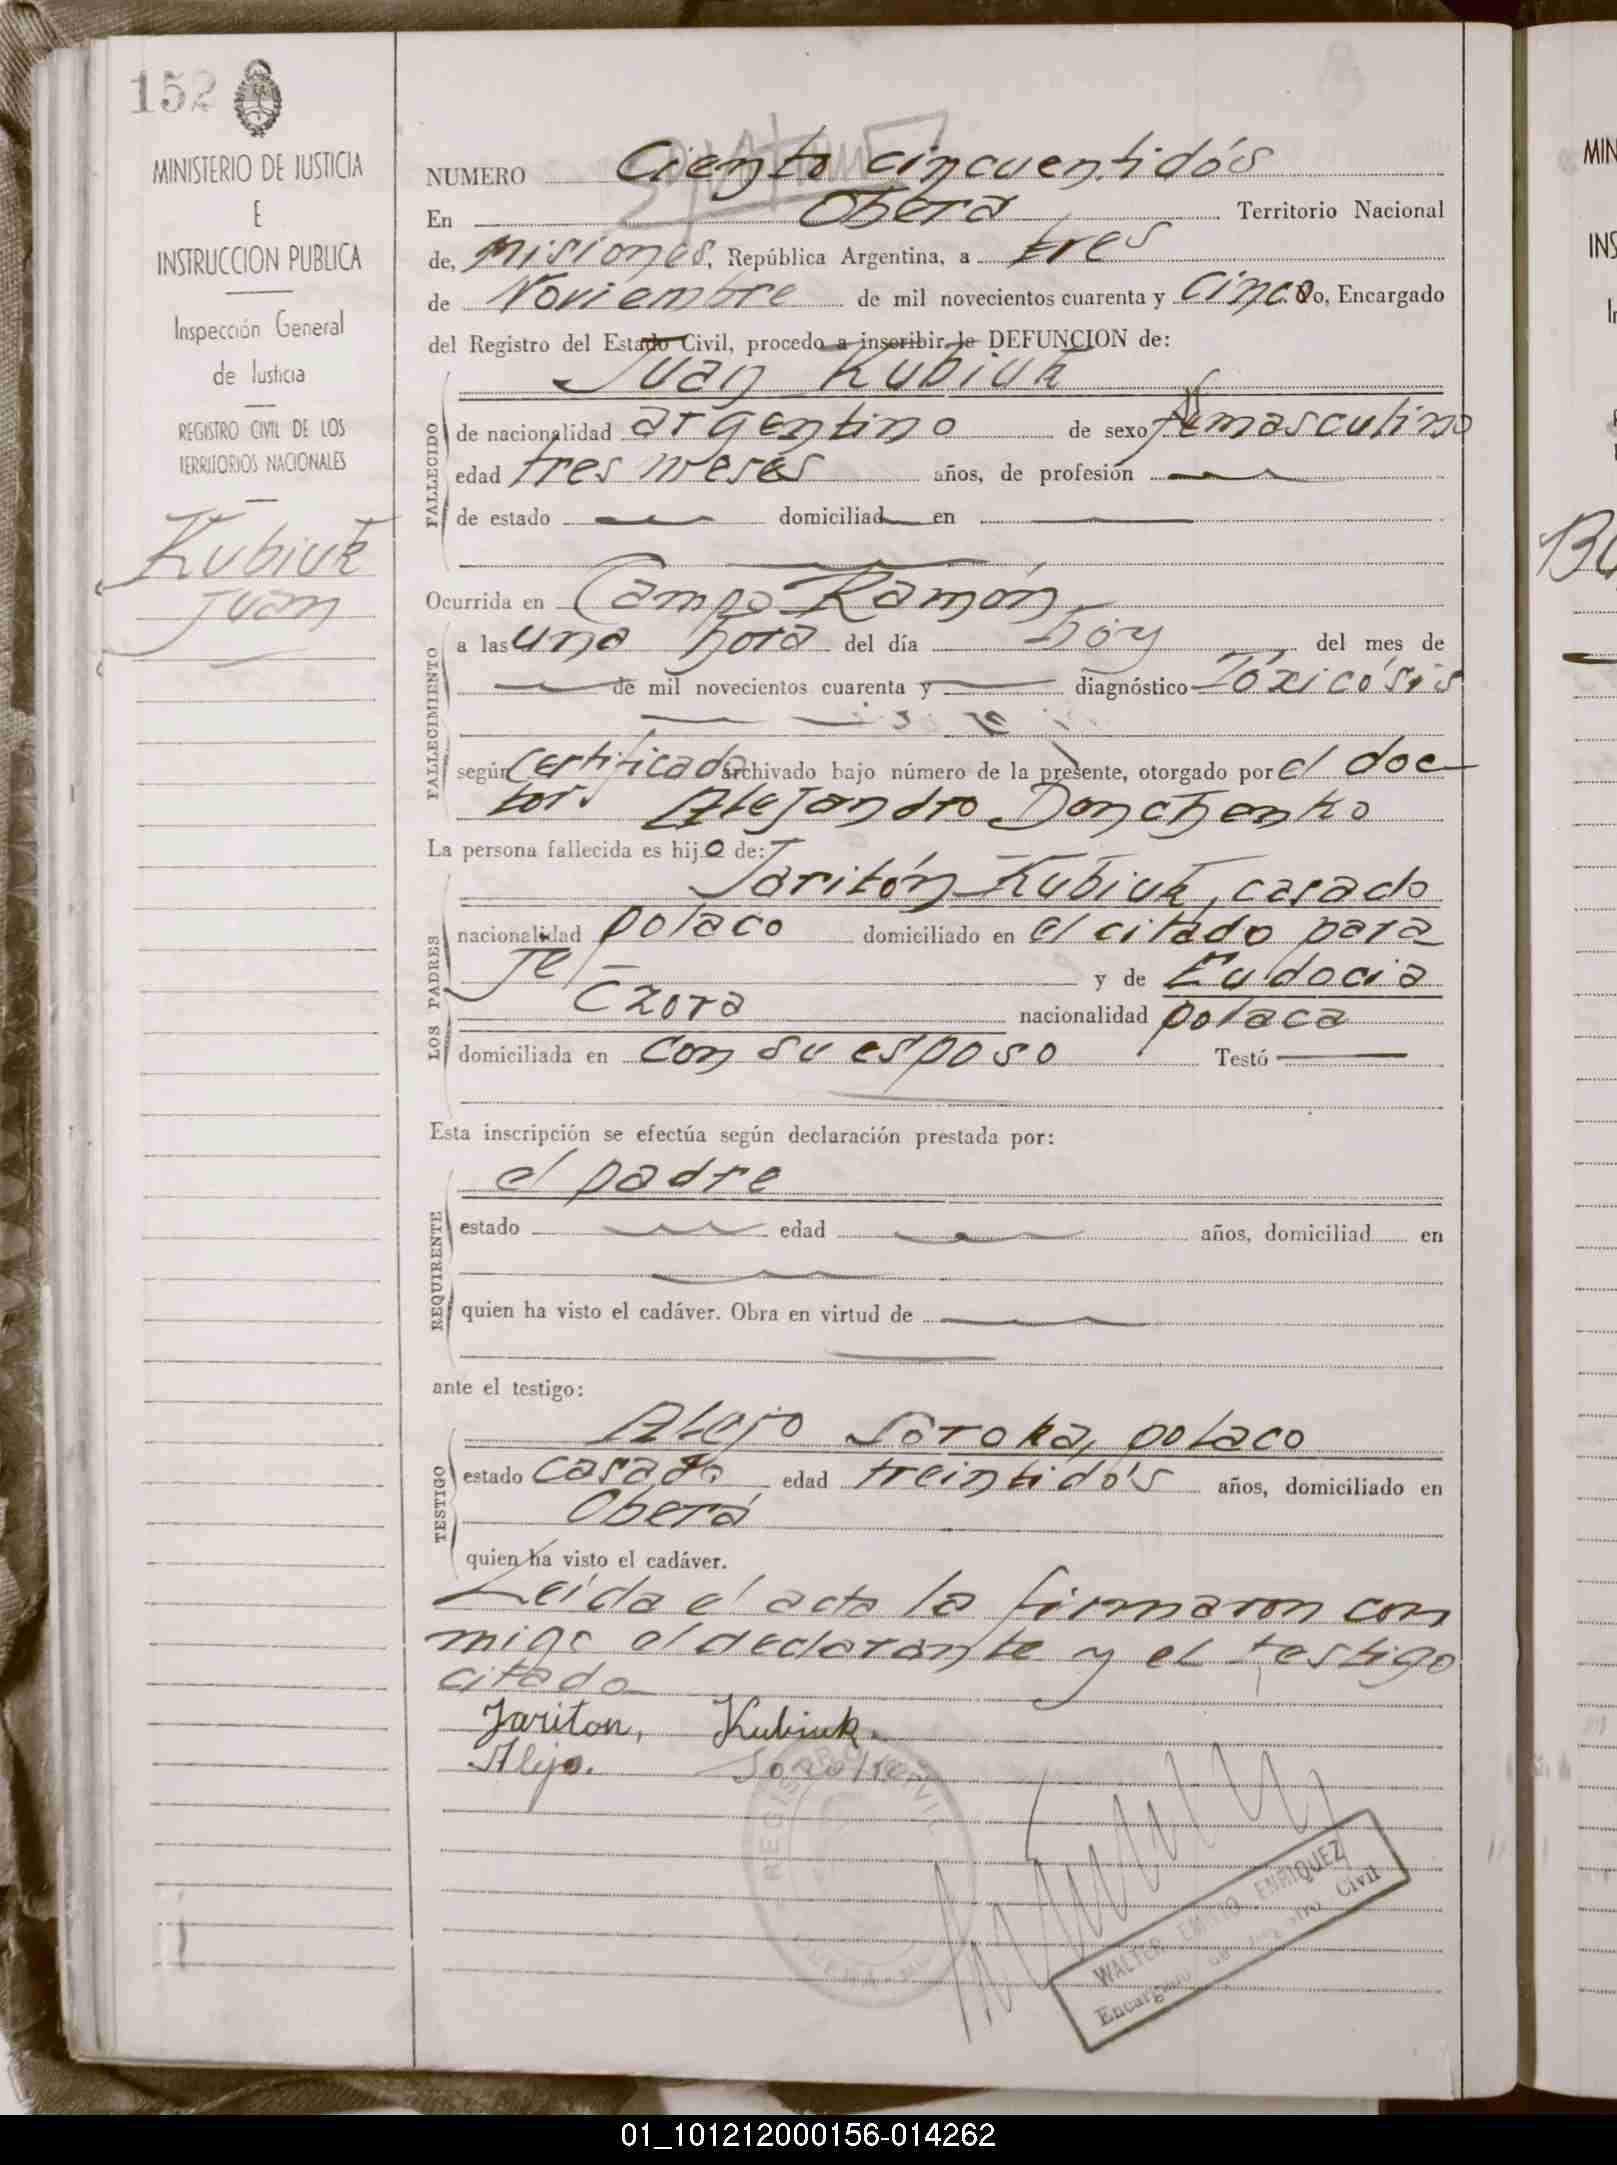 152
MINISTERIO DE JUSTICIA
E
INSTRUCCION PUBLICA
Inspección General
de Justicia
REGISTRO CIVIL DE LOS
TERRITORIOS NACIONALES
Kubiuk
Juan
NUMERO Ciento cincuentidós
En Obera Territorio Nacional
de, Misiones, República Argentina, a tres
de Noviembre de mil novecientos cuarenta y cinco Yo, Encargado
del Registro del Estado Civil, procedo a inscribir la DEFUNCION de:
Juan Kubiuk
FALLECIDO
de nacionalidad argentino de sexo masculino
edad tres meses años, de profesión
de estado domiciliad en
Ocurrida en Campo Ramón
FALLECIMIENTO
a las una hora del día hoy del mes de
de mil novecientos cuarenta y diagnóstico Tóxicósis
según certificado archivado bajo número de la presente, otorgado por el doc
tor Alejandro Donchenko
La persona fallecida es hijo de:
LOS PADRES
Jaritón Kubiuk, casado
nacionalidad polaco domiciliado en el citado para
je y de Eudocia
Czora nacionalidad polaca
domiciliada en con su esposo Testó
Esta inscripción se efectúa según declaración prestada por:
REQUIRENTE
el padre
estado edad años, domiciliad en
quien ha visto el cadáver. Obra en virtud de
ante el testigo:
TESTIGO
Alejo Soroka, polaco
estado casado edad treintidós años, domiciliado en
Oberá
quien ha visto el cadáver.
Leída el acta la firmaron con
migo el declarante y el testigo
citado
Jariton, Kubiuk.
Alejo. Soroka
REGISTRO CIVIL
WALTER EMILIO ENRIQUEZ
Encargado del Registro Civil
MIN
INS
01_101212000156-014262